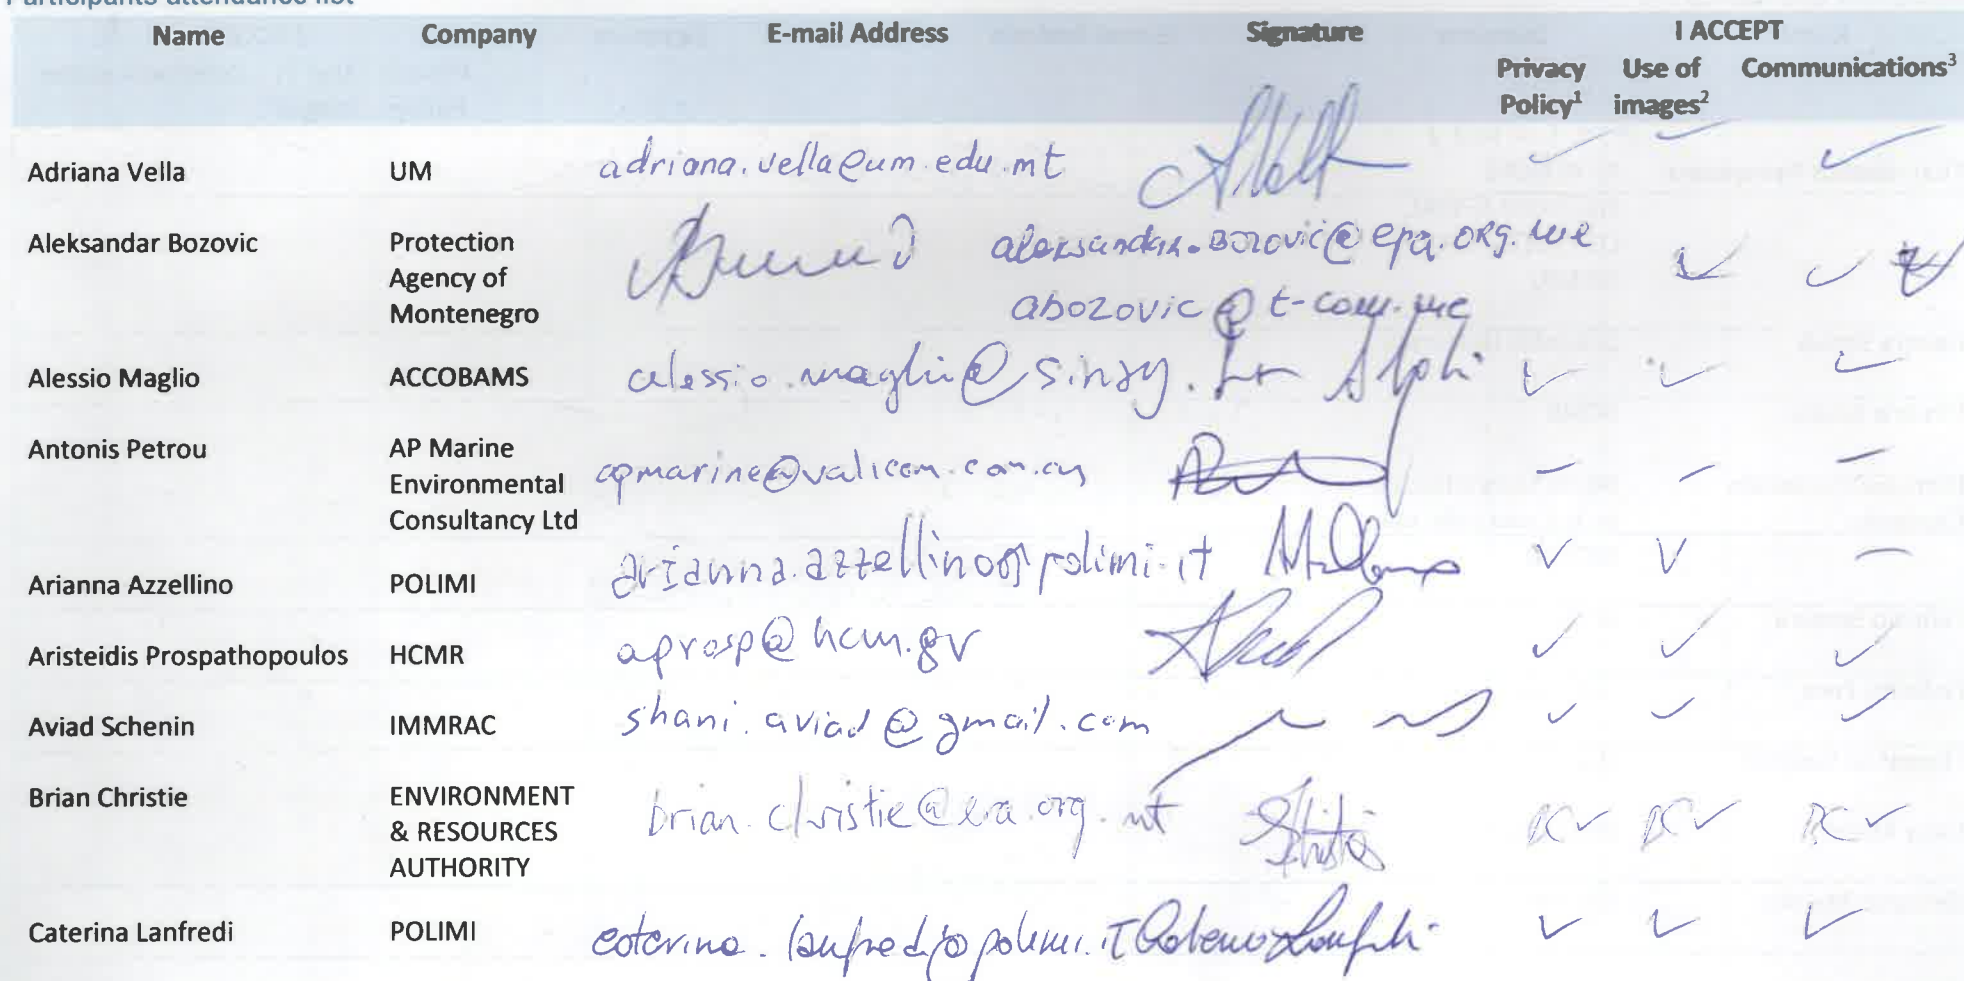 Participants attendance list
Name Company E-mail Address Signature I ACCEPT
Privacy Policy¹ Use of images² Communications³
Adriana Vella UM adriana.vella@um.edu.mt
Aleksandar Bozovic Protection Agency of Montenegro aleksandar.bozovic@epa.org.me
abozovic@t-com.me
Alessio Maglio ACCOBAMS alessio.maglio@sinay.fr
Antonis Petrou AP Marine Environmental Consultancy Ltd apmarine@valicom.com.cy
Arianna Azzellino POLIMI arianna.azzellino@polimi.it
Aristeidis Prospathopoulos HCMR aprosp@hcmr.gr
Aviad Schenin IMMRAC shani.aviad@gmail.com
Brian Christie ENVIRONMENT & RESOURCES AUTHORITY brian.christie@era.org.mt BC BC BC
Caterina Lanfredi POLIMI caterina.lanfredi@polimi.it